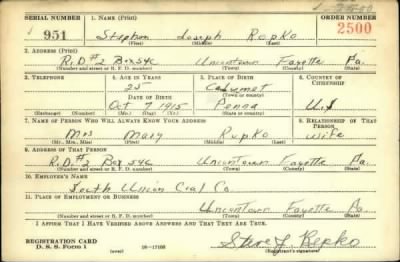 SERIAL NUMBER 1. NAME (Print) ORDER NUMBER
951 Stephen Joseph Repko 2500
(First) (Middle) (Last)
2. ADDRESS (Print)
R.D.#2 Box 54C Uniontown Fayette Pa.
(Number and street or R. F. D. number) (Town) (County) (State)
3. TELEPHONE 4. AGE IN YEARS 5. PLACE OF BIRTH 6. COUNTRY OF CITIZENSHIP
25 Calumet
DATE OF BIRTH (Town or county)
Oct 7 1915 Penna U.S
(Exchange) (No.) (Mo.) (Day) (Yr.) (State or country)
7. NAME OF PERSON WHO WILL ALWAYS KNOW YOUR ADDRESS 8. RELATIONSHIP OF THAT PERSON
Mrs Mary Repko Wife
(Mr., Mrs., Miss) (First) (Middle) (Last)
9. ADDRESS OF THAT PERSON
R.D.#2 Box 54C Uniontown Fayette Pa.
(Number and street or R. F. D. number) (Town) (County) (State)
10. EMPLOYER'S NAME
South Union Coal Co.
11. PLACE OF EMPLOYMENT OR BUSINESS
Uniontown Fayette Pa.
(Number and street or R. F. D. number) (Town) (County) (State)
I AFFIRM THAT I HAVE VERIFIED ABOVE ANSWERS AND THAT THEY ARE TRUE.
REGISTRATION CARD
D. S. S. Form 1 (over) 16-17105 Steve J. Repko
(Registrant's signature)